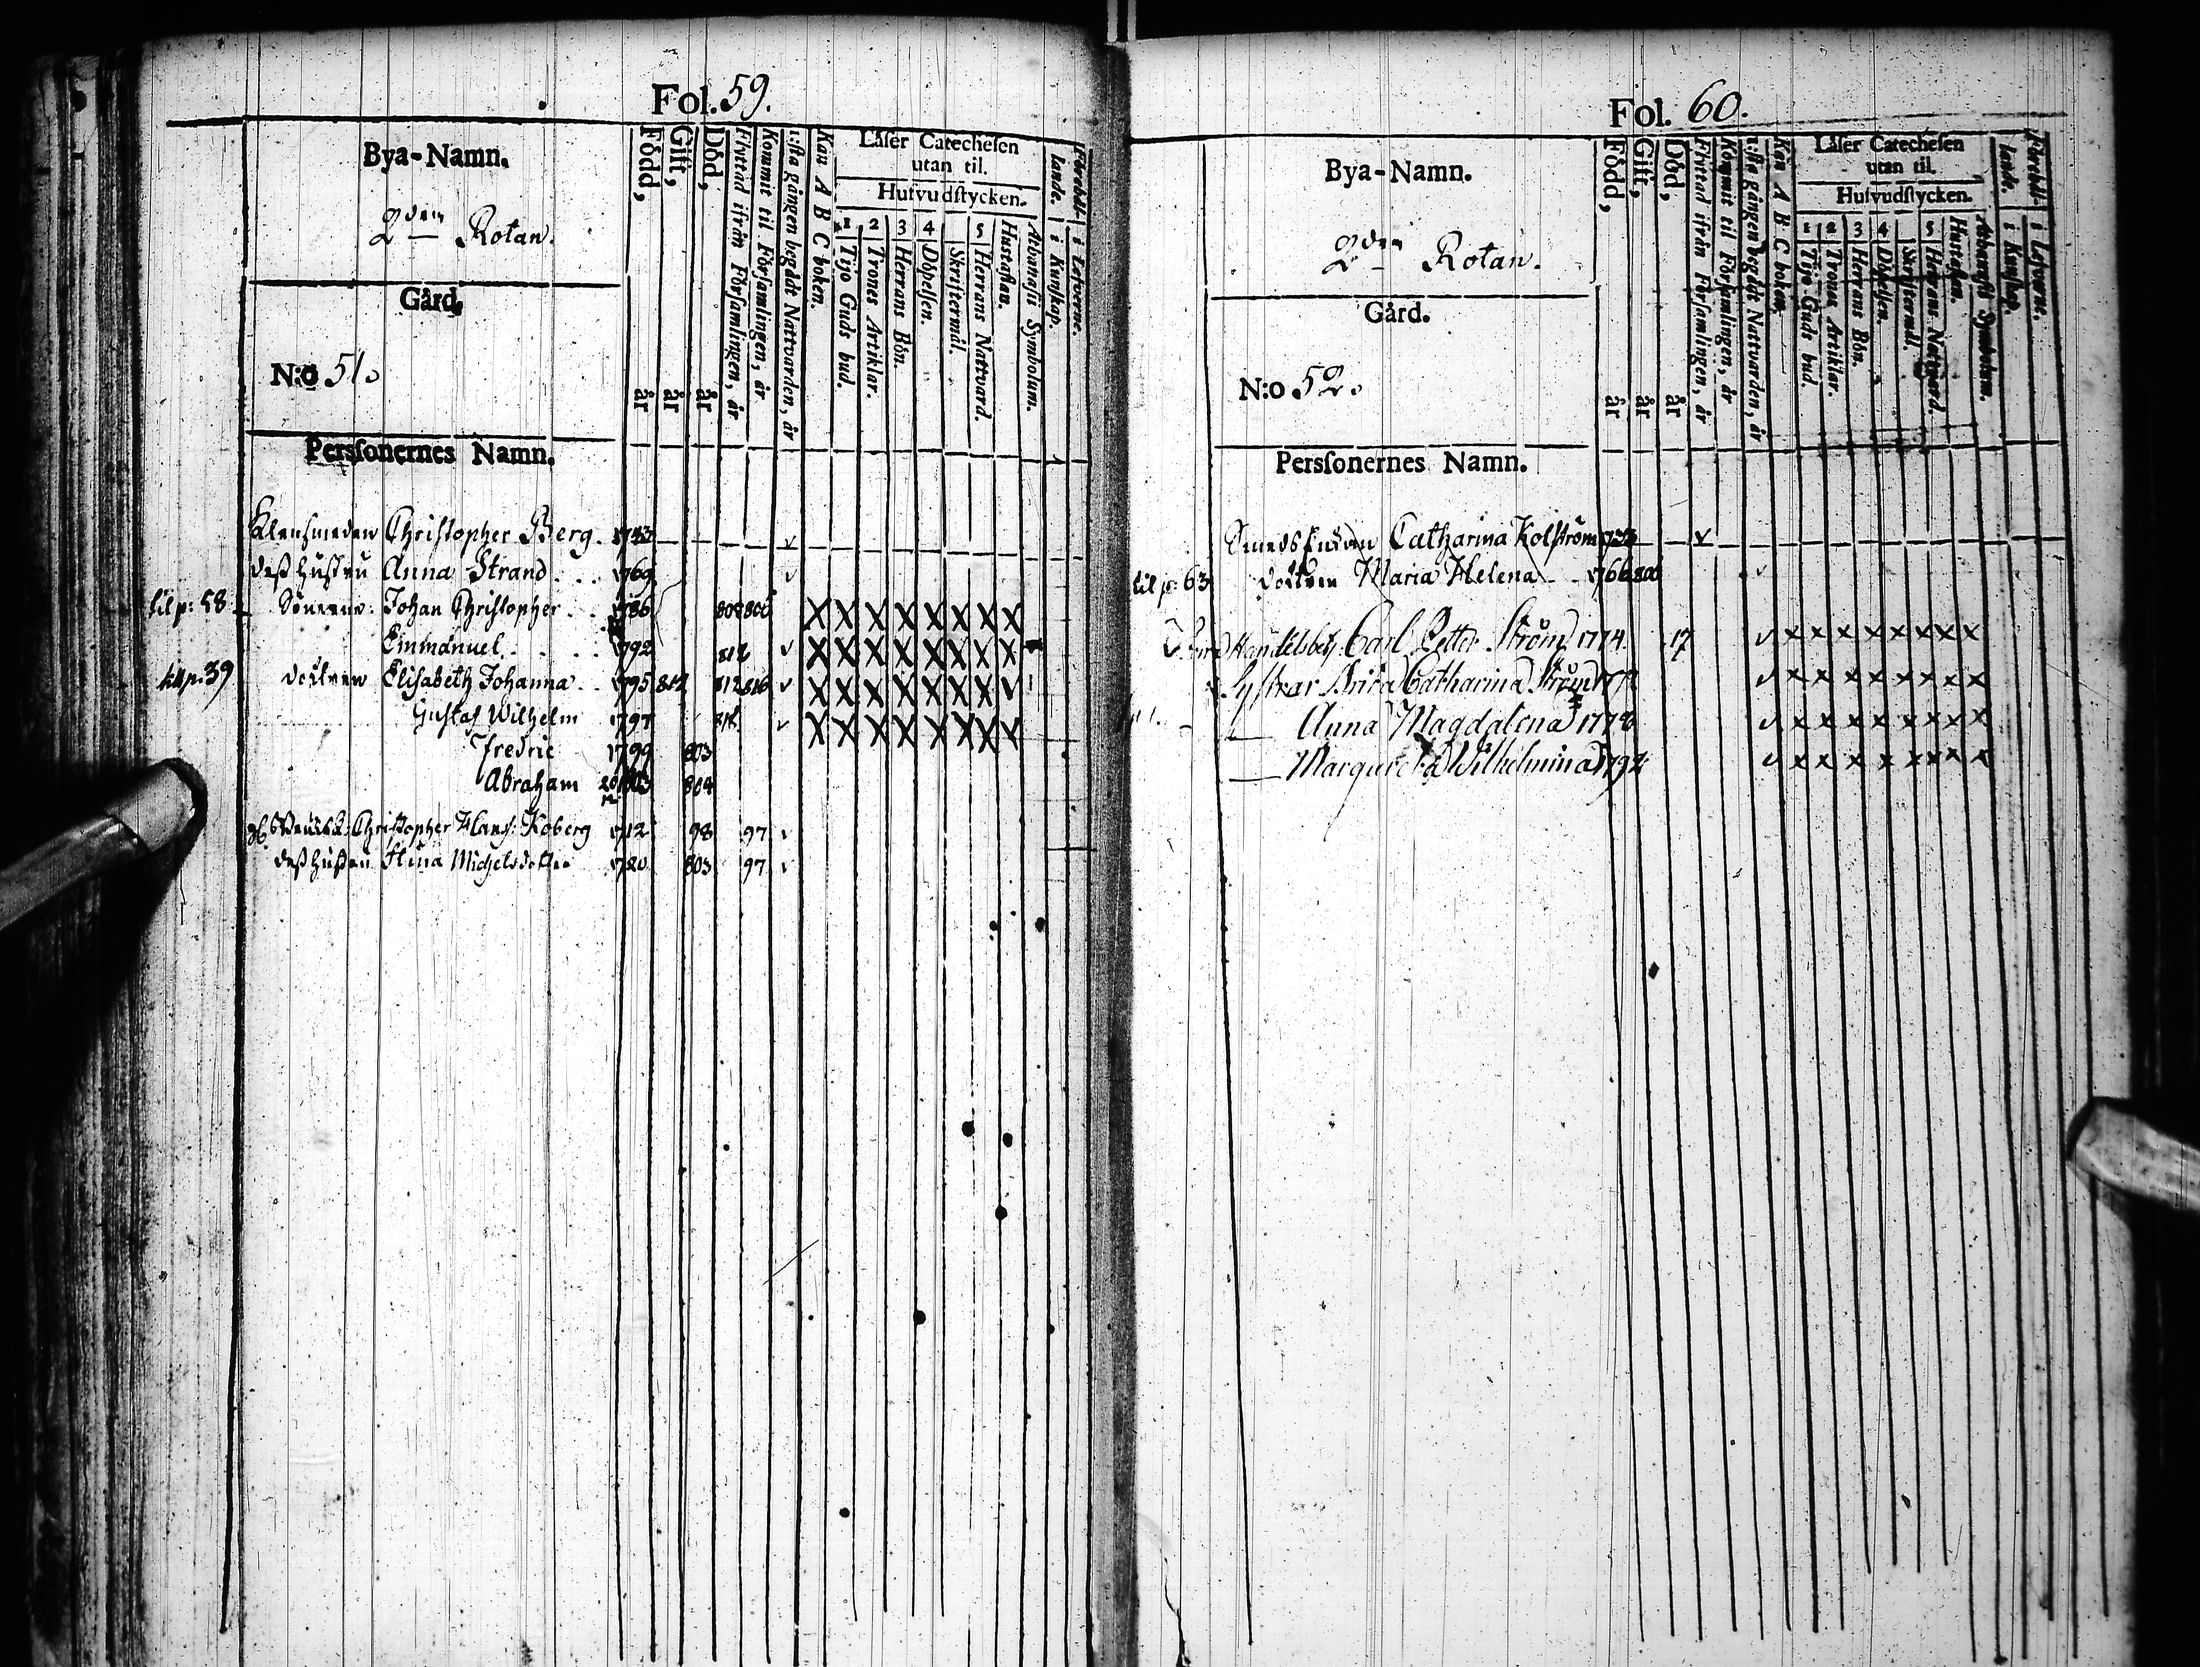 Fol. 59.
Bya-Namn.
2den Rotan.
Gård.
N:o 51.
Persſonernes Namn.
Född, år
Gift, år
Död, år
Flyttad ifrån Församlingen, år
Kommit til Församlingen, år
1:sta gången begådt Nattvarden, år
Kan A B C boken.
Låser Catecheſen utan til.
Hufvudſtycken.
1 Tijo Guds bud.
2 Trones Artiklar.
3 Herrans Bön.
4 Döpelsen.
Skriftermål.
5 Herrans Nattvard.
Hustaflan.
Athanasii Symbolum.
Förehållande.
i Kunskap.
i Lefverne.
Klensmeden Christopher Berg. 1743
deß hustru Anna Strand . . . 1769 v
til p: 58 Sönerne: Johan Christopher . . 1786 808 806 X X X X X X X X
Emmanuel . . . . 1792 812 v X X X X X X X X
till p. 39 dottren Elisabeth Johanna . . 1795 812 812 816 v X X X X X X X X
Gustaf Wilhelm 1797 816 v X X X X X X X X
Fredric 1799 803
Abraham 1803 804
Christopher Hans: Koberg 1712 98 97 v
deß hustru Stina Michelsdotter 1720 803 97 v
Fol. 60.
Bya-Namn.
2den Rotan.
Gård.
N:o 52.
Persſonernes Namn.
Född, år
Gift, år
Död, år
Flyttad ifrån Församlingen, år
Kommit til Församlingen, år
1:sta gången begådt Nattvarden, år
Kan A B C boken.
Låser Catecheſen utan til.
Hufvudſtycken.
1 Tijo Guds bud.
2 Trones Artiklar.
3 Herrans Bön.
4 Döpelsen.
Skriftermål.
5 Herrans Nattvard.
Hustaflan.
Athanasii Symbolum.
Förehållande.
i Kunskap.
i Lefverne.
Smeds Enkan Catharina Kolström 1733 v
til p: 63 dottren Maria Helena 1766 800 v
Handelsbetj. Carl Petter Ström 1774. 17 v x x x x x x x x
Systrar Brita Catharina Ström v x x x x x x x x
— Anna Magdalena 1778 v x x x x x x x x
— Margareta Wilhelmina 1792 v x x x x x x x x